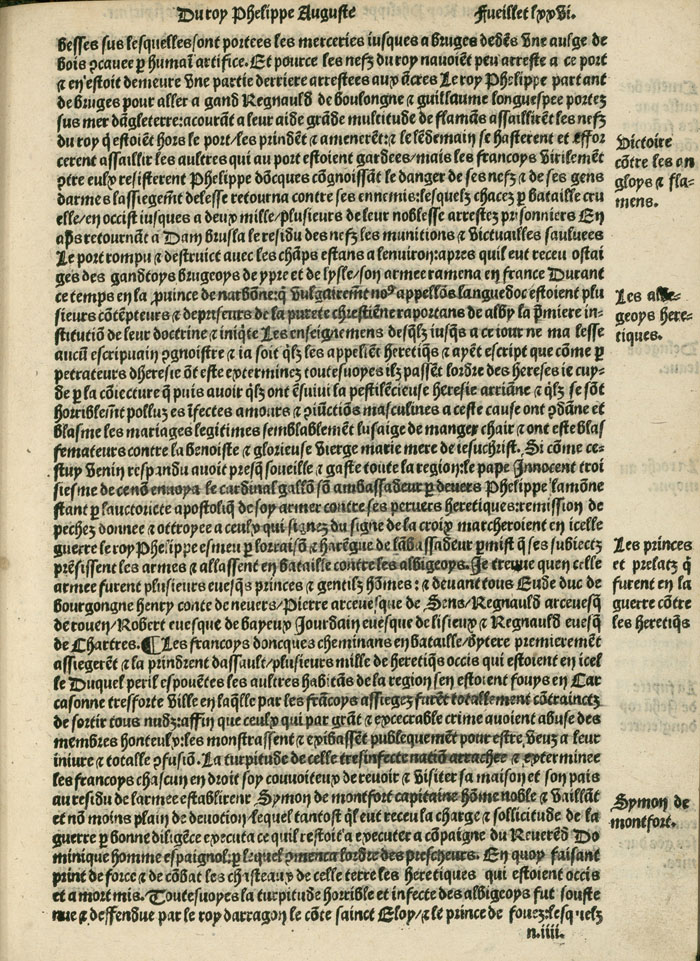 Du roy Phelippe Auguste Fueillet lxxvi.
besses sus lesquelles sont portees les merceries iusques a bruges dedẽs vne aulge de
bois ꝯcauee p humaĩ artifice. Et pource les nefz du roy nauoiẽt peu arreste a ce port
⁊ en estoit demeure vne partie derriere arrestees aux ãcres Le roy Phelippe partant
de bruges pour aller a gand Regnauld de boulongne ⁊ guillaume longuespee portez
sus mer dãgleterre: acourãt a leur aide grãde multitude de flamãs assaillirẽt les nefz
du roy q̃ estoiẽt hors le port/les prindẽt ⁊ amenerẽt: ⁊ le lẽdemain se hasterent et effor
cerent assaillir les aultres qui au port estoient gardees/mais les francoys virilemẽt
ꝯtre eulx resisterent Phelippe dõcques cõgnoissãt le danger de ses nefz ⁊ de ses gens
darmes la ssiegem̃t delesse retourna contre ses ennemis: lesquelz chacez p bataille cru
elle/en occist iusques a deux mille/plusieurs de leur noblesse arrestez prisonniers En
ap̃s retournãt a Dam brusla le residu des nefz les munitions ⁊ victuailles sauluees
Le port rompu ⁊ destruict auec les chãps estans a lenuiron: apres quil eut receu ostai
ges des gandtoys brugeoys de ypre et de lysle/son armee ramena en france Durant
ce temps en la puince de narbõne: q̃ vulgairem̃t noꝰ appellõs languedoc estoient plu
sieurs cõtẽpteurs ⁊ depriseurs de la purete chrestiẽne raportans de alby la p̃miere in-
stitutiõ de leur doctrine ⁊ iniq̃te Les enseignemens desq̃lz iusq̃s a ce iour ne ma lesse
aucũ escripuain ꝯgnoistre ⁊ ia soit q̃lz les appellẽt heretiq̃s ⁊ ayẽt escript que cõme p
petrateurs dheresie õt este exterminez toutesuoyes ilz passẽt lordre des hereses ie cuy-
de p la cõiecture q̃ puis auoir q̃lz ont ẽsuiui la pestilẽcieuse heresie arriãne ⁊ q̃lz se sõt
horriblem̃t polluz es ĩfectes amours ⁊ ꝯiũctiõs masculines a ceste cause ont ꝯdãne et
blasme les mariages legitimes semblablemẽt lusaige de manger chair ⁊ ont este blas
femateurs contre la benoiste ⁊ glorieuse vierge marie mere de iesuchrist. Si cõme ce-
stuy venin respandu auoit presq̃ soueille ⁊ gaste toute la region: le pape Innocent troi
siesme de ce nõ enuoya le cardinal gallõ sõ ambassadeur p deuers Phelippe lamõne
stant p lauctoricte apostoliq̃ de soy armer contre ses peruers heretiques: remission de
pechez donnee ⁊ ottroyee a ceulx qui signez du signe de la croix marcheroient en icelle
guerre le roy Phelippe esmeu p lorraisõ ⁊ harẽgue de lãbassadeur p̃mist q̃ ses subiectz
prẽsissent les armes ⁊ allassent en bataille contre les albigeoys. Je treuue quen celle
armee furent plusieurs euesq̃s princes ⁊ gentilz hõmes: ⁊ deuant tous Eude duc de
bourgongne henry conte de neuers/Pierre arceuesque de Sens/Regnauld arceuesq̃
de rouen/Robert euesque de bayeux Jourdain euesque de lisieux ⁊ Regnauld euesq̃
de Chartres. ¶ Les francoys doncques cheminans en bataille/bytere premieremẽt
assiegerẽt ⁊ la prindrent dassault/plusieurs mille de heretiq̃s occis qui estoient en icel
le Duquel peril espouẽtes les aultres habitãs de la region sen estoient fouys en Car
casonne tresforte ville en laq̃lle par les frãcoys assiegez furẽt totallement cõtrainctz
de sortir tous nudz: affin que ceulx qui par grãt ⁊ excecrable crime auoient abuse des
membres honteulx: les monstrassent ⁊ exibassẽt publequemẽt pour estre veuz a leur
iniure ⁊ totalle ꝯfusiõ. La turpitude de celle tresinfecte natiõ arrachee ⁊ exterminee
les francoys chascun en droit soy couuoiteux de reuoir ⁊ visiter sa maison et son pais
au residu de larmee establirent Symon de montfort capitaine hõme noble ⁊ vaillãt
et nõ moins plain de deuotion lequel tantost q̃l eut receu la charge ⁊ sollicitude de la
guerre p bonne diligẽce executa ce quil restoit a executer a cõpaigne du Reuerẽd Do
minique homme espaignol: p lequel ꝯmenca lordre des prescheurs. En quoy faisant
print de force ⁊ de cõbat les chasteaux de celle terre les heretiques qui estoient occis
et a mort mis. Toutesuoyes la turpitude horrible et infecte des albigeoys fut souste
nue ⁊ deffendue par le roy darragon le cõte sainct Eloy/⁊ le prince de fouez: lesquelz
n.iiii.
Victoire
cõtre les an
gloys ⁊ fla-
mens.
Les albe-
geoys here-
tiques.
Les princes
et prelatz q̃
furent en la
guerre cõtre
les heretiq̃s
Symon de
montfort.